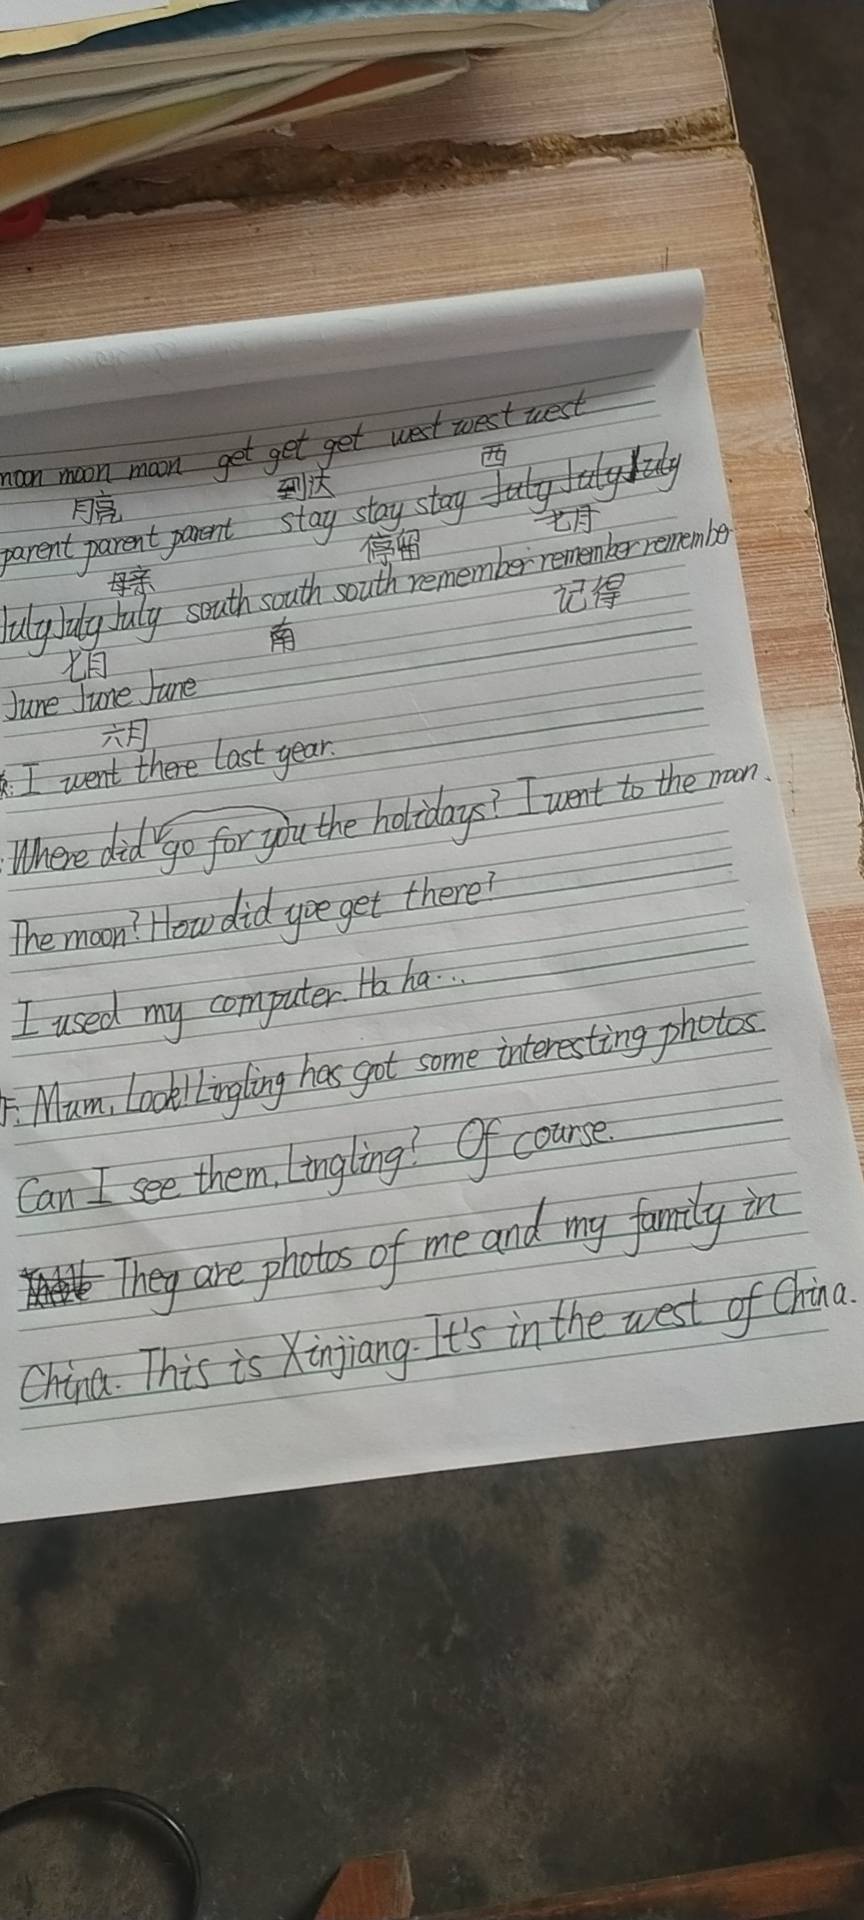 moon moon moon get get get west west west
月亮 到达 西
parent parent parent stay stay stay July July July
母亲 停留 七月
July July July south south south remember remember remember
七月 南 记得
June June June
六月
I went there last year.
Where did go for you the holidays? I went to the moon.
The moon? How did you get there?
I used my computer. Ha ha...
Mum, Look! Lingling has got some interesting photos.
Can I see them, Lingling? Of course.
They are photos of me and my family in
China. This is Xinjiang. It's in the west of China.